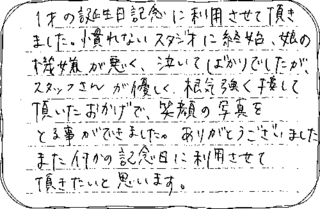 1才の誕生日記念に利用させて頂き
ました。慣れないスタジオに終始、娘の
機嫌が悪く、泣いてばかりでしたが、
スタッフさんが優しく、根気強く接して
頂いたおかげで、笑顔の写真を
とる事ができました。ありがとうございました
また何かの記念日に利用させて
頂きたいと思います。